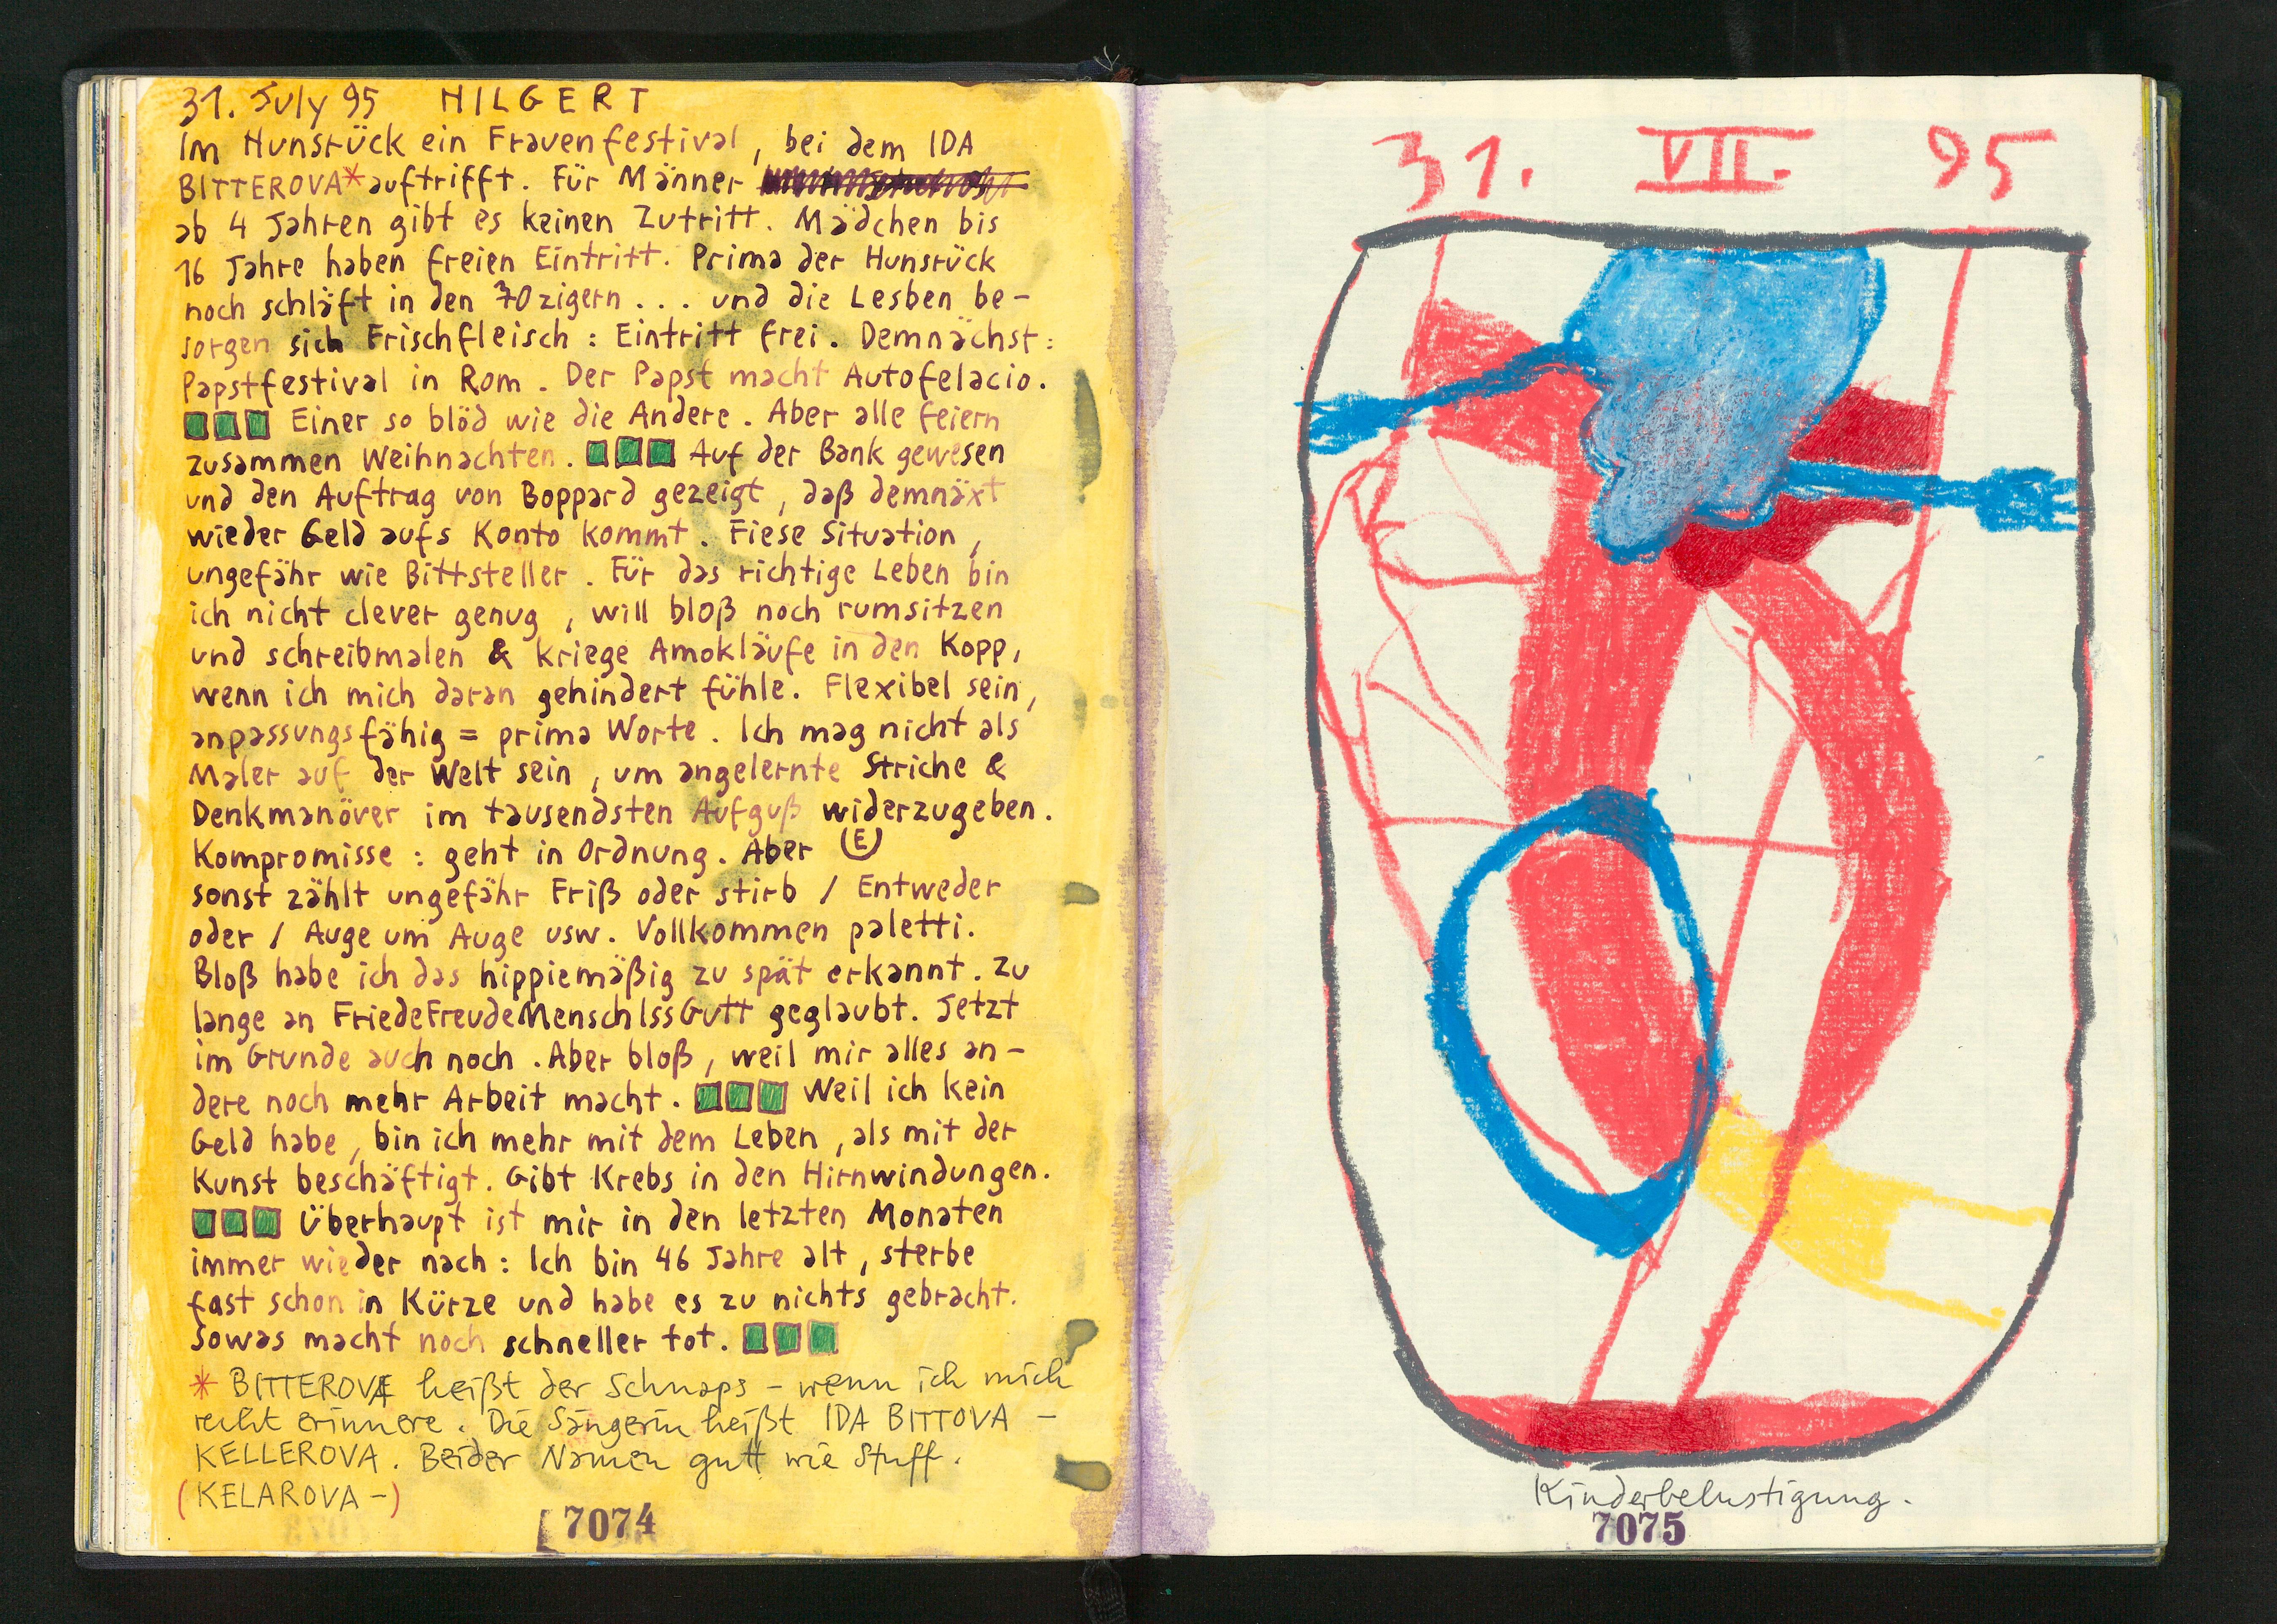 31. July 95 HILGERT
Im Hunsrück ein Frauenfestival, bei dem IDA
BITTEROVA* auftrifft. Für Männer
ab 4 Jahren gibt es keinen Zutritt. Mädchen bis
16 Jahre haben freien Eintritt. Prima der Hunsrück
noch schläft in den 70zigern... und die Lesben be-
sorgen sich Frischfleisch: Eintritt frei. Demnächst:
Papstfestival in Rom. Der Papst macht Autofelacio.
Einer so blöd wie die Andere. Aber alle feiern
zusammen Weihnachten. Auf der Bank gewesen
und den Auftrag von Boppard gezeigt, daß demnäxt
wieder Geld aufs Konto kommt. Fiese Situation,
ungefähr wie Bittsteller. Für das richtige Leben bin
ich nicht clever genug, will bloß noch rumsitzen
und schreibmalen & kriege Amokläufe in den Kopp,
wenn ich mich daran gehindert fühle. Flexibel sein,
anpassungsfähig = prima Worte. Ich mag nicht als
Maler auf der Welt sein, um angelernte Striche &
Denkmanöver im tausendsten Aufguß widerzugeben.
Kompromisse: geht in Ordnung. Aber (E)
sonst zählt ungefähr Friß oder stirb / Entweder
oder / Auge um Auge usw. Vollkommen paletti.
Bloß habe ich das hippiemäßig zu spät erkannt. Zu
lange an FriedeFreudeMenschIssGutt geglaubt. Jetzt
im Grunde auch noch. Aber bloß, weil mir alles an-
dere noch mehr Arbeit macht. Weil ich kein
Geld habe, bin ich mehr mit dem Leben, als mit der
Kunst beschäftigt. Gibt Krebs in den Hirnwindungen.
Überhaupt ist mir in den letzten Monaten
immer wieder nach: Ich bin 46 Jahre alt, sterbe
fast schon in Kürze und habe es zu nichts gebracht.
Sowas macht noch schneller tot.
* BITTEROVA heißt der Schnaps - wenn ich mich
recht erinnere. Die Sängerin heißt IDA BITTOVA -
KELLEROVA. Beider Namen gutt wie Stuff.
(KELAROVA-)
7074
31. VII. 95
Kinderbelustigung.
7075